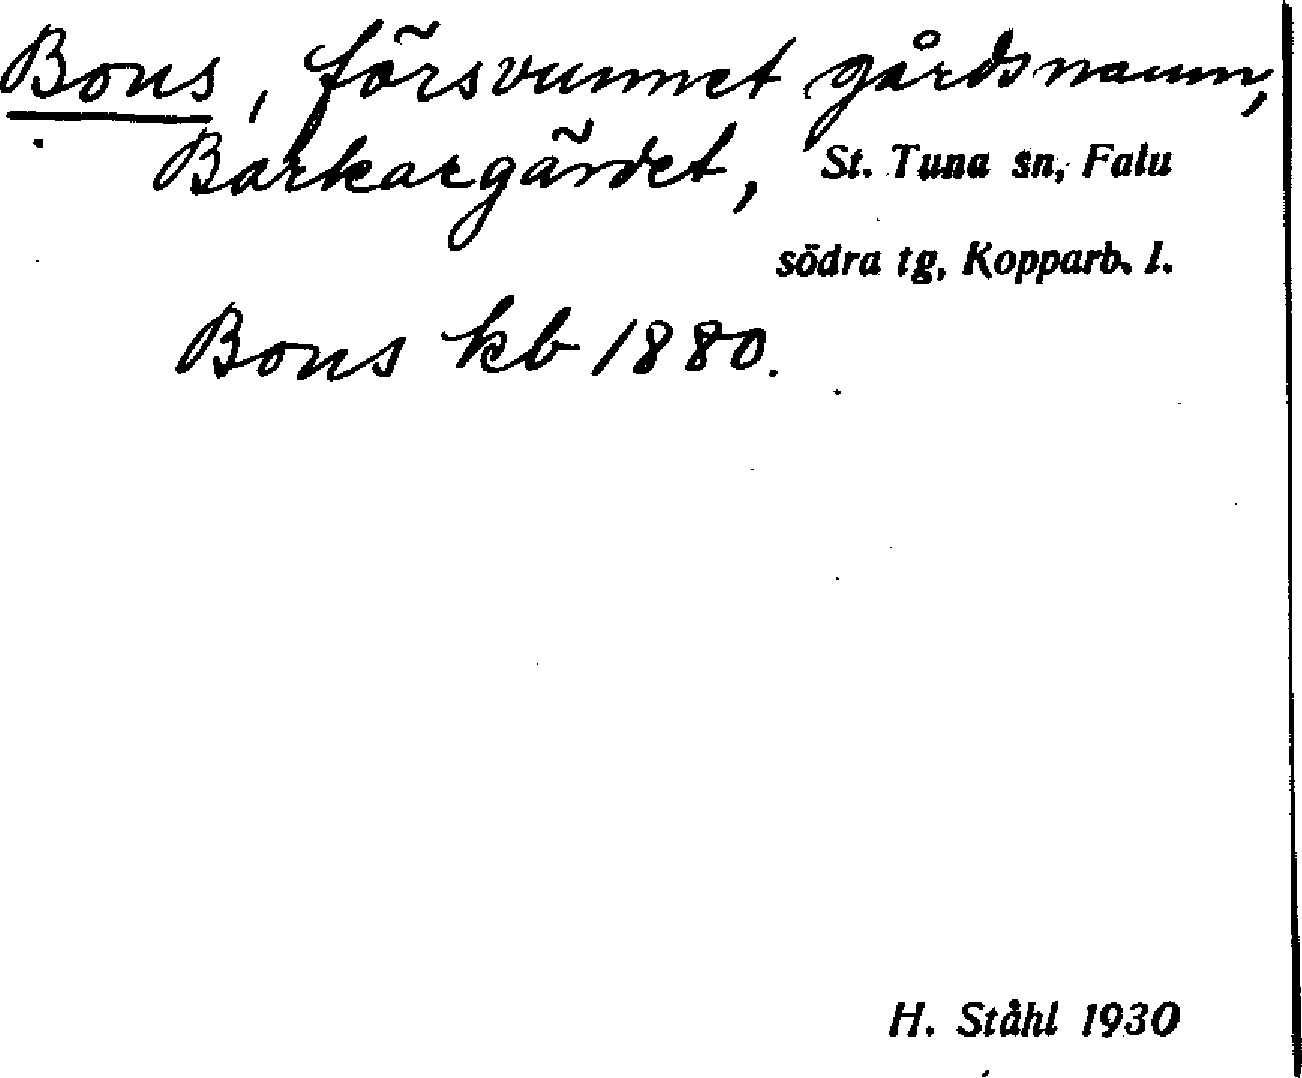 Bons, försvunnet gårdsnamn,
Barkargärdet, St. Tuna sn, Falu
södra tg, Kopparb. l.
Bons kb 1880.
H. Ståhl 1930